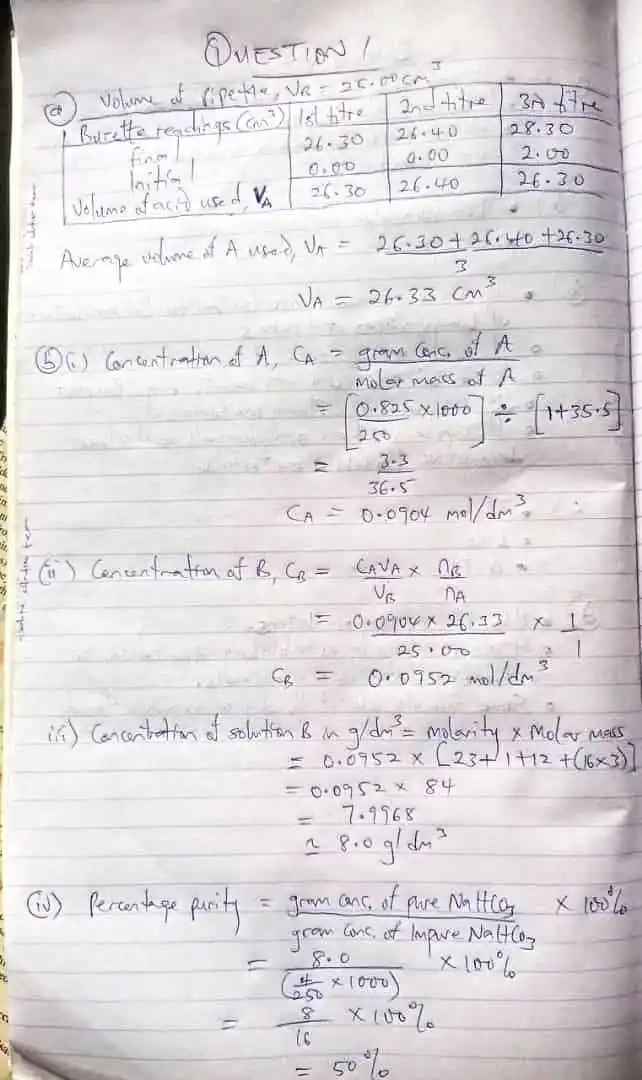 QUESTION 1
(a) Volume of pipette, VB = 25.00cm³
Burette readings (cm³) | 1st titre | 2nd titre | 3rd titre
final | 26.30 | 26.40 | 28.30
Initial | 0.00 | 0.00 | 2.00
Volume of acid used, VA | 26.30 | 26.40 | 26.30
Average volume of A used, VA = 26.30 + 26.40 + 26.30
3
VA = 26.33 cm³
(b) (i) Concentration of A, CA = gram conc. of A
molar mass of A
= [0.825 × 1000] ÷ [1+35.5]
250
= 3.3
36.5
CA = 0.0904 mol/dm³
(ii) Concentration of B, CB = CAVA × nB
VB nA
= 0.0904 × 26.33 × 1
25.00 1
CB = 0.0952 mol/dm³
iii) Concentration of solution B in g/dm³ = molarity × Molar mass
= 0.0952 × [23+1+12+(16×3)]
= 0.0952 × 84
= 7.9968
≃ 8.0 g/dm³
(iv) Percentage purity = gram conc. of pure NaHCO3 × 100%
gram conc. of Impure NaHCO3
= 8.0 × 100%
(4/250 × 1000)
= 8 × 100%
16
= 50%